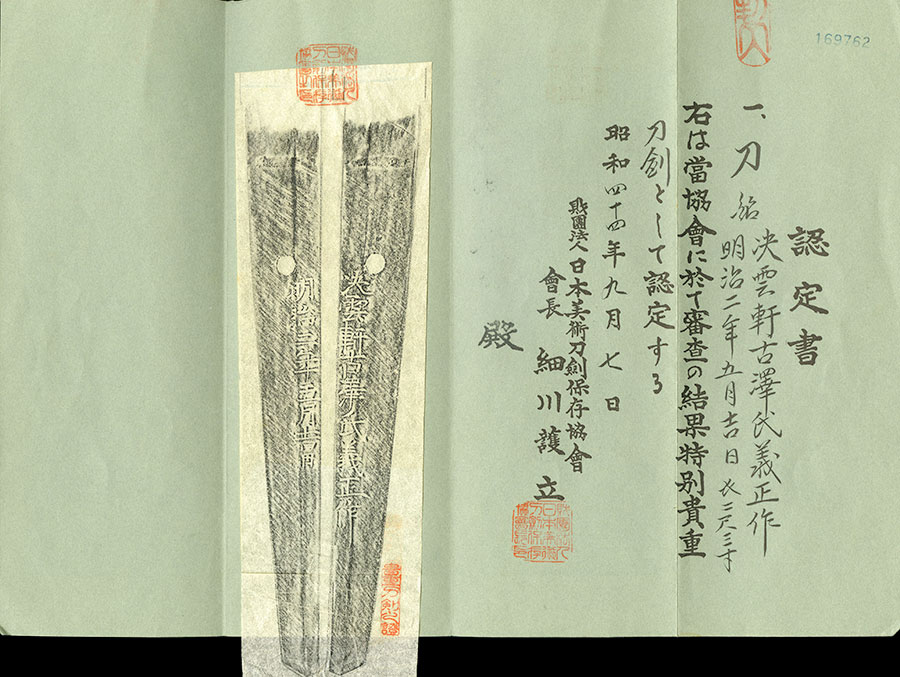 169762
認定書
一、刀 銘 决雲軒古澤氏義正作
明治二年五月吉日 長二尺三寸
右は當協會に於て審査の結果特別貴重
刀劍として認定する
昭和四十四年九月七日
財團法人日本美術刀劍保存協會
會長 細川護立
殿
决雲軒古澤氏義正作
明治二年五月吉日